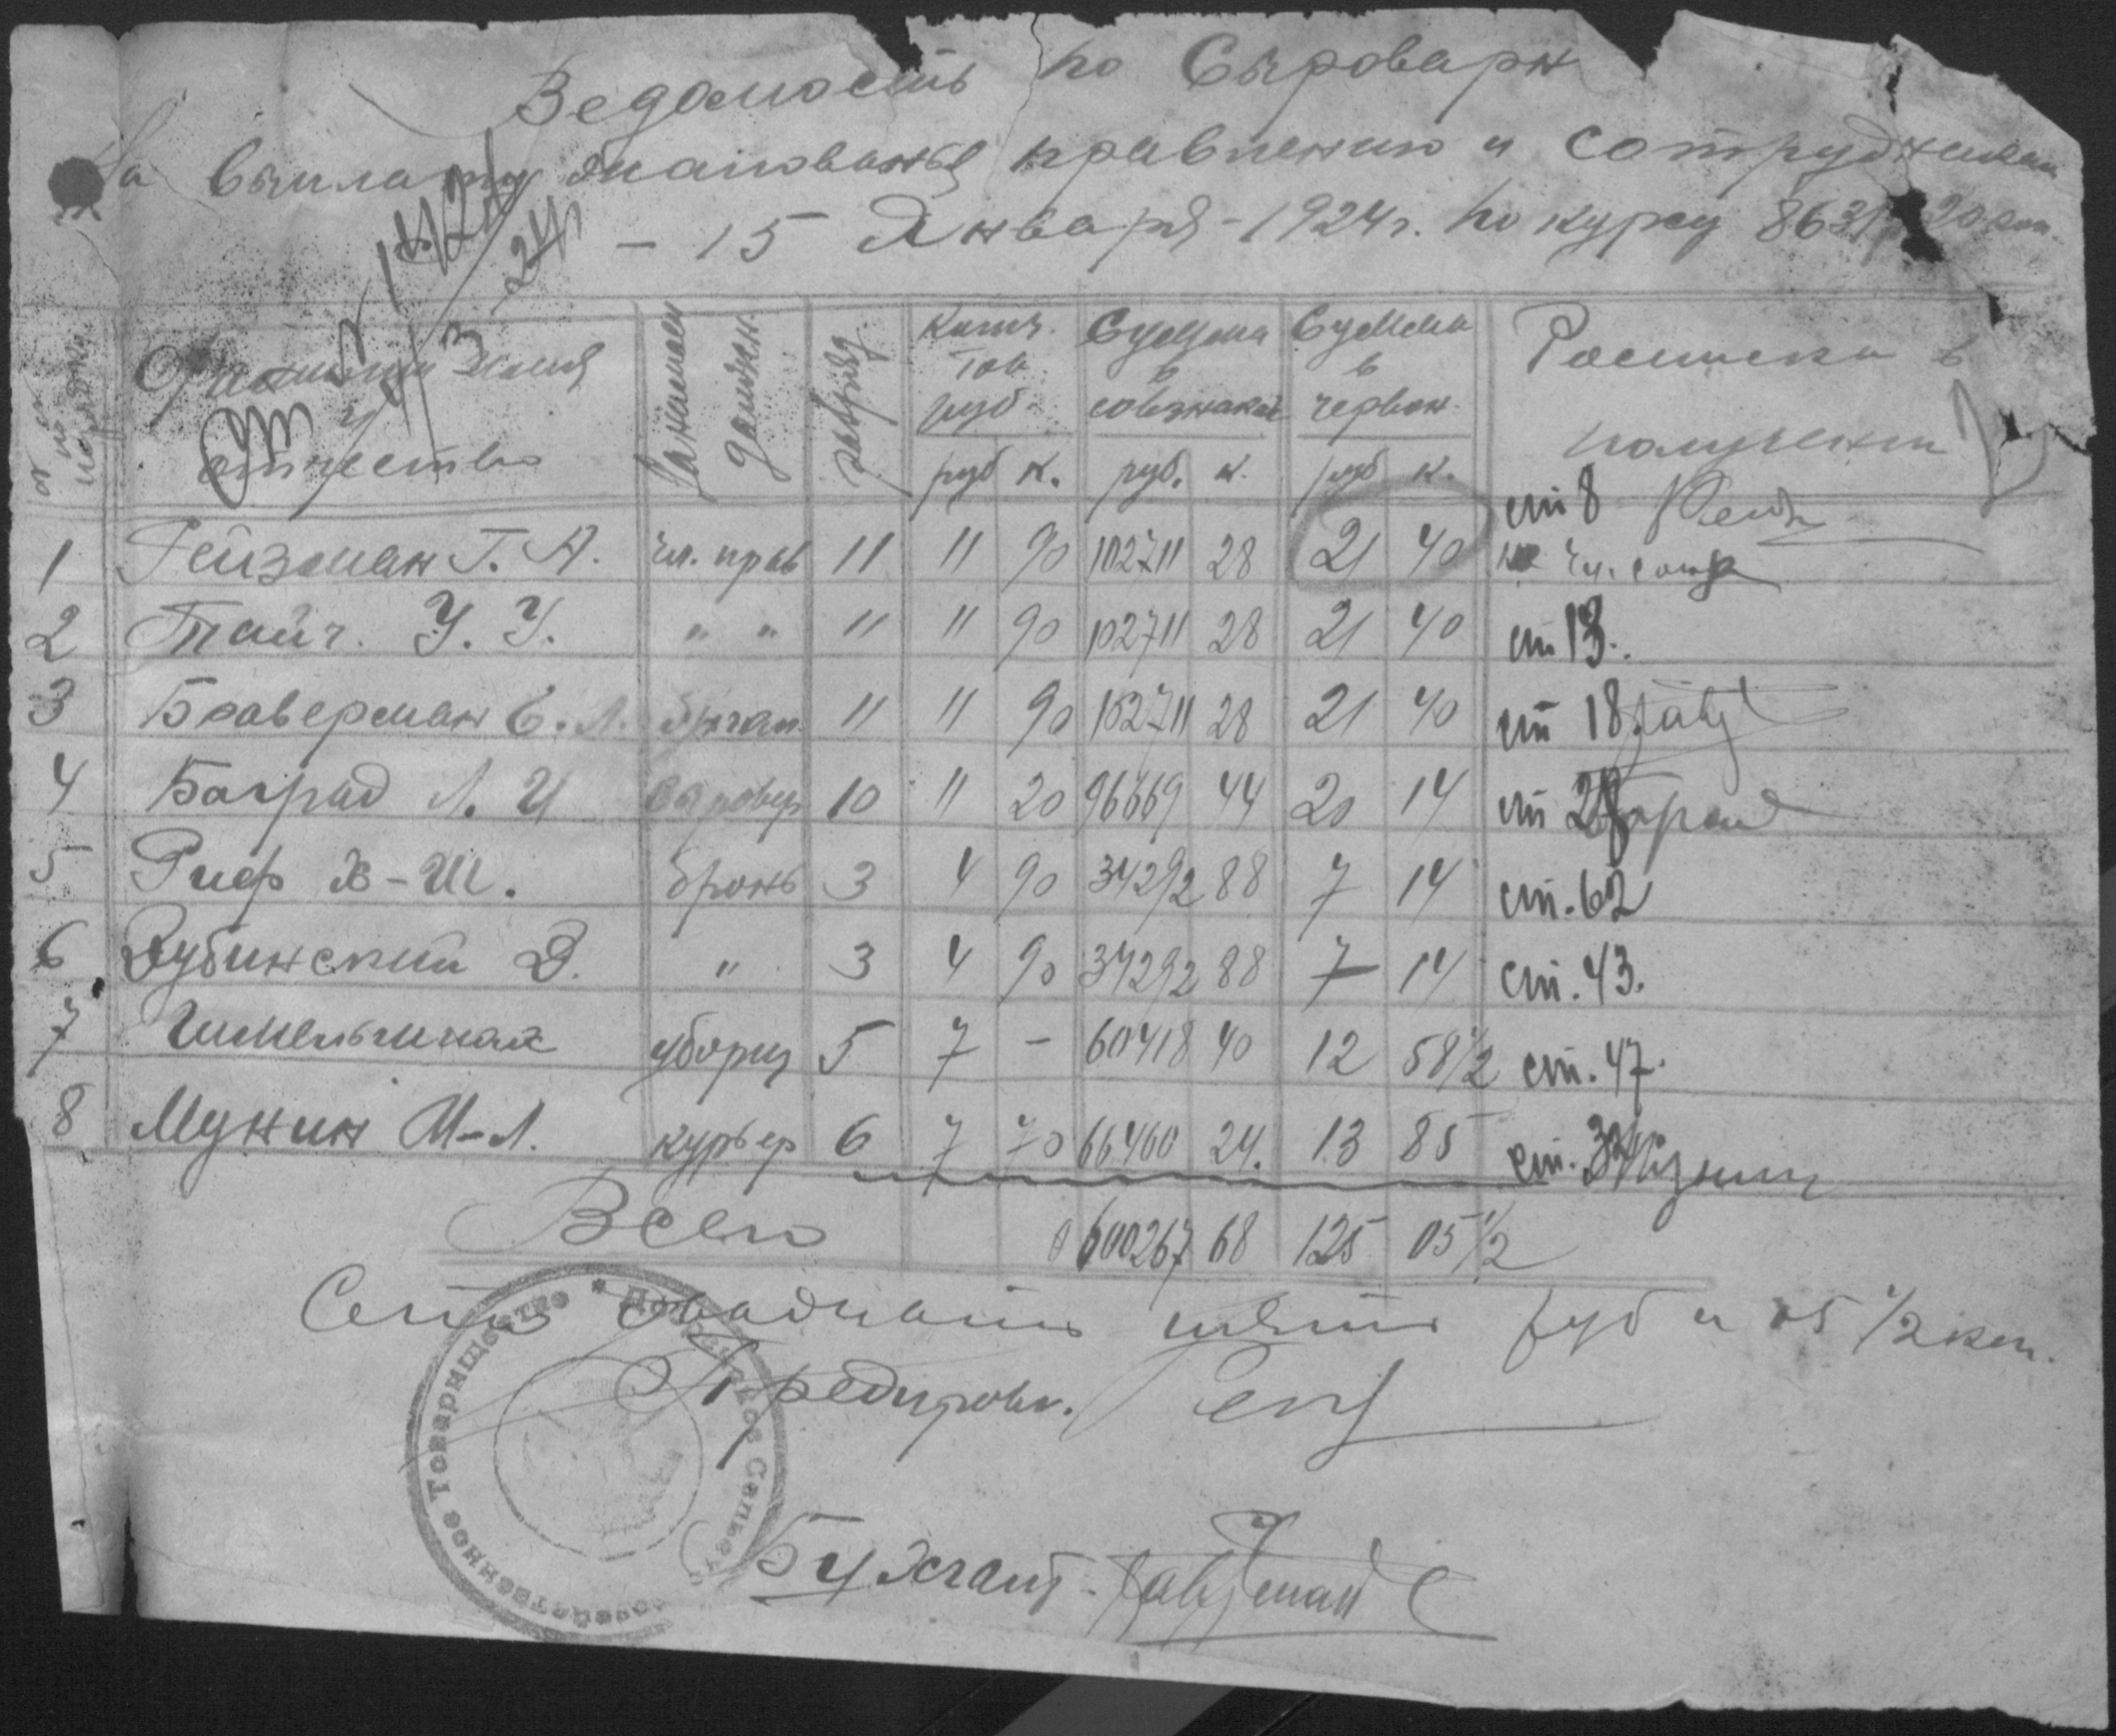 Ведомость по Сыроварн
На выплату жалованья правлению и сотрудникам
- 15 Января - 1924 г. по курсу 8631 р 20 коп.
№ по порядку
Фамилия Имя и отчество
Занимаем должн.
разряд
Колич. тов. руб.
Сумма в совзнаках
Сумма в червон.
Росписка в получении
руб к. руб. к. руб к.
1 Рейзман Г. А. чл. прав 11 11 90 102711 28 21 40 ст 8
2 Тайч. У. У. " " 11 11 90 102711 28 21 40 ст 13.
3 Браверман Е. Л. бухгал. 11 11 90 102711 28 21 40 ст 18
4 Баград Л. И сыровар 10 11 20 96669 44 20 14 ст
5 Риф Х-Ш. бронь 3 4 90 34292 88 7 14 ст. 62
6 Дубинский Д. " 3 4 90 34292 88 7 14 ст. 43.
7 уборщ 5 7 - 60418 40 12 58 1/2 ст. 47.
8 Мунин М-Л. курьер 6 7 70 66460 24. 13 85 ст.
Всего 600267 68 125 05 1/2
Сто двадцать пять руб и 05 1/2 коп.
Предправл.
Бухгалт.
Товарищество